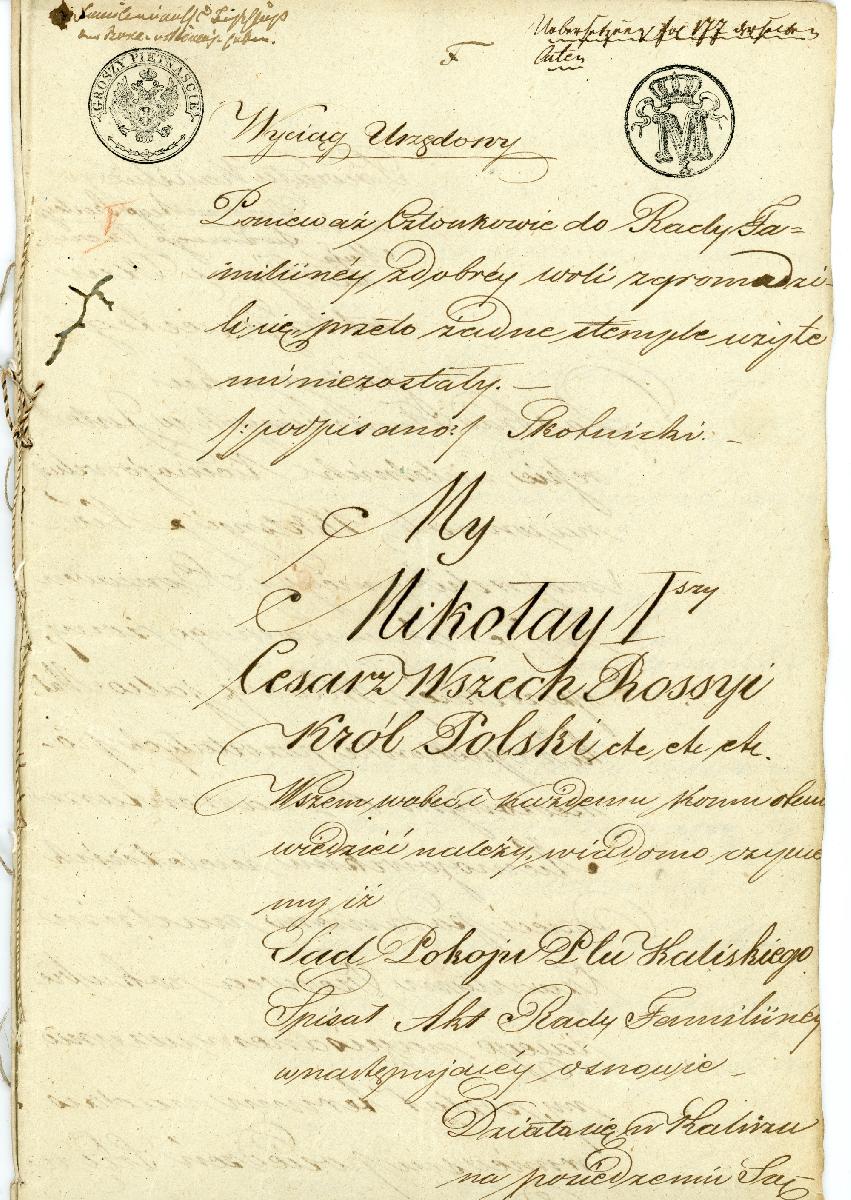 Uebersetzung fol 177 derselben
Akten
F
GROSZY PIETNAŚCIE
M
Wyciąg Urzędowy
Ponieważ Członkowie do Rady Fa=
miliinéy z dobréy woli zgromadzi-
li się, przeto żadne stemple użyte
mi niezostały. —
/:podpisano:/ Skotnicki. —
My
Mikołay Iszy
Cesarz Wszech Rossyi
Król Polski etc etc etc.
Wszem wobec i każdemu komu o tem
wiedziéć należy, wiadomo czynie
my iż
Sąd Pokoju Ptu Kaliskiego
Spisał Akt Rady Familiinéy
w następuiącéy osnowie —
Działo się w Kaliszu
na posiedzeniu Są=